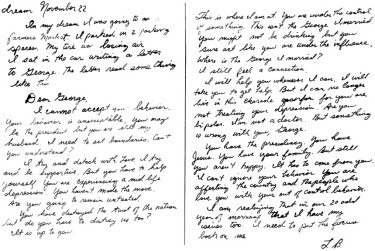 dream November 22
In my dream I was going to a
farmers market. I parked in 2 parking
spaces. My tire was losing air
I sat in the car writing a letter
to George. The letter read something
like this
Dear George
I cannot accept your behavior.
Your behavior is unacceptable. You may
be the president but you are still my
husband. I need to set boundaries. Can't
you understand?
I try and detach with love. I try
and be supportive. But you have to help
yourself. You are experiencing a mid life
depression. You haven't made the move.
Are you going to remain untreated.
You have destroyed the trust of the nation
but do you have to destroy us too?
It is up to you
This is where I am at. You are under the control
of something. This isn't the George I married
You might not be drinking but you
sure act like you are under the influence.
Where is the George I married?
I still feel a connection
I will help you whenever I can. I will
take you to get help. But I can no longer
live in this charade for you are
not treating your depression. Are you
bipolar. I'm not a doctor. But something
is wrong with you George.
You have the presidency. You have
Jesus. You have your family. But still
you aren't happy. It has to come from you.
I can't ignore your behavior. You are
affecting the country and people who
love you with your out of control behavior.
I am realizing that in our 20 odd
years of marriage that I have my
issues too. I need to put the focus
back on me
L B